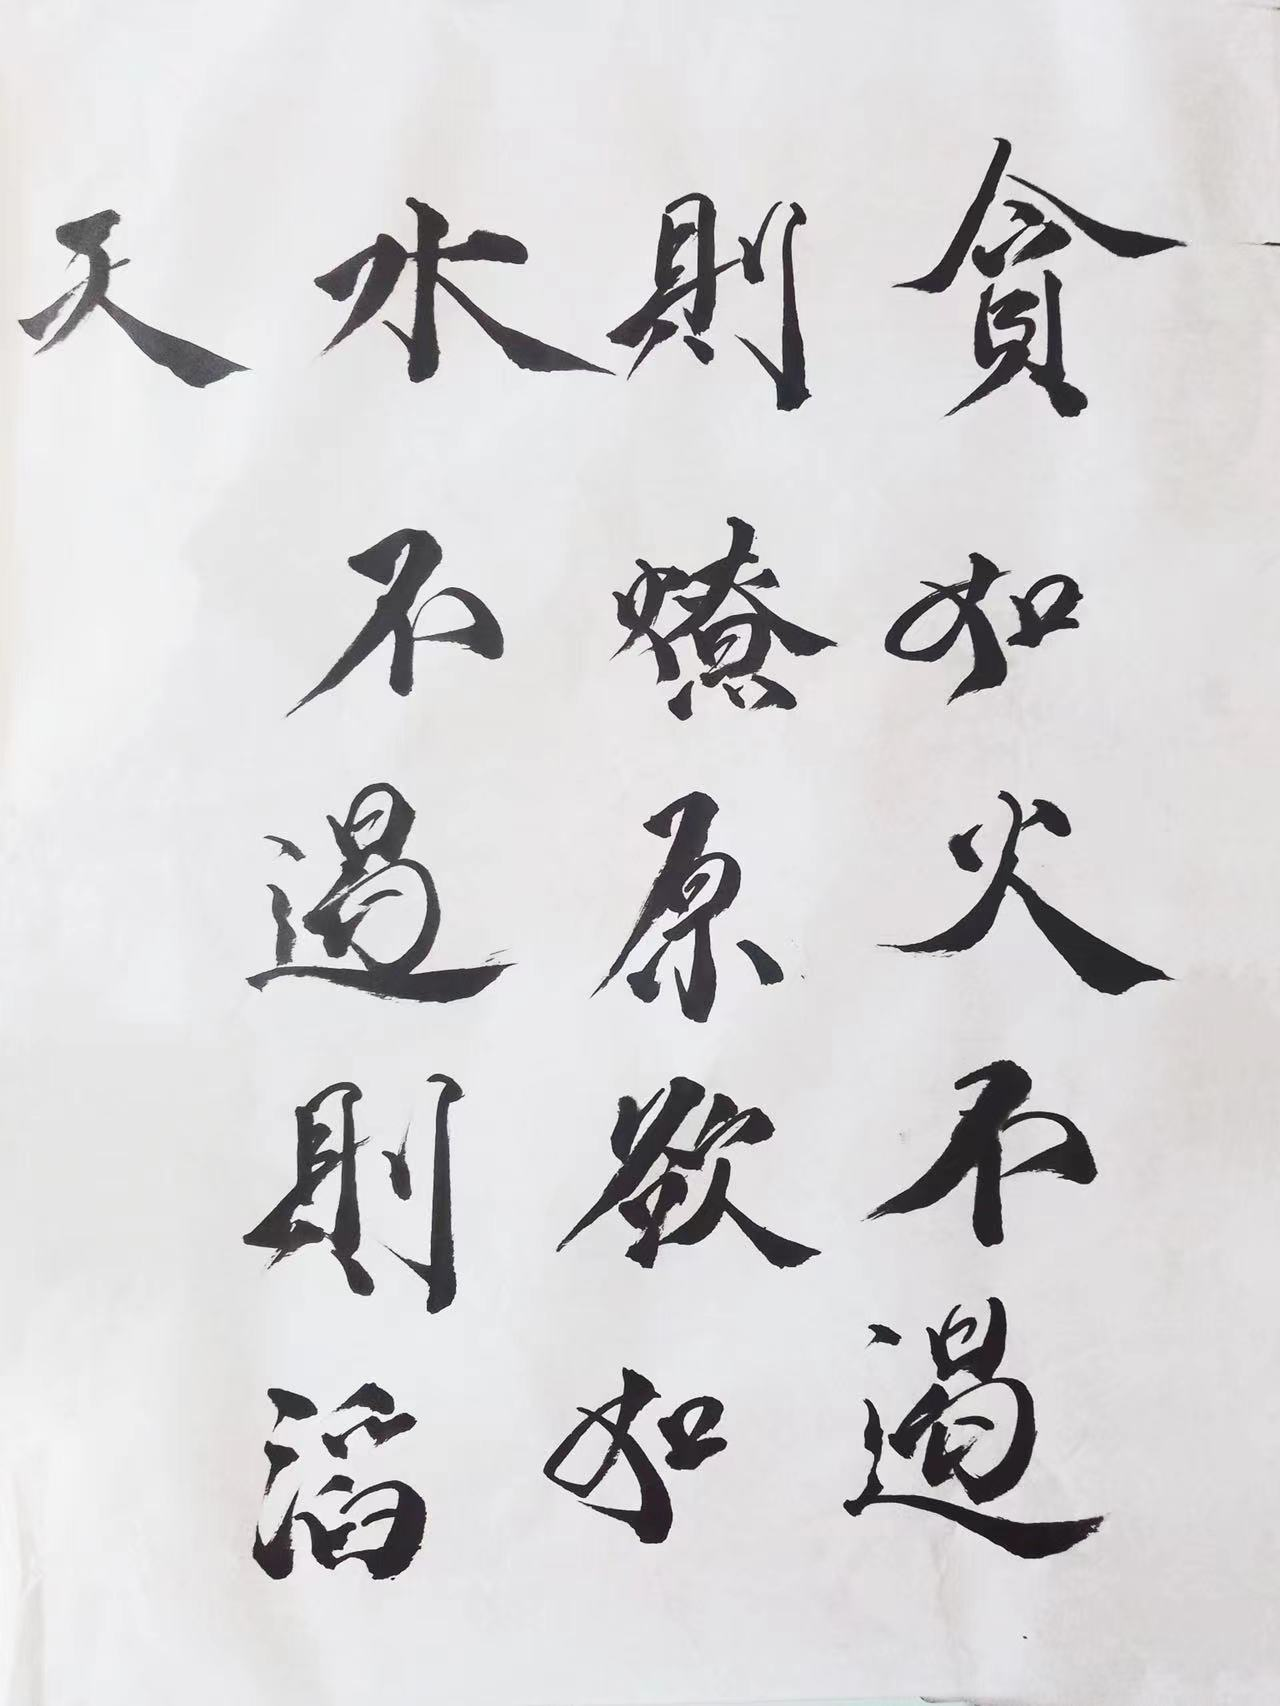 貪如火不遏
則燎原欲如
水不遏則滔
天